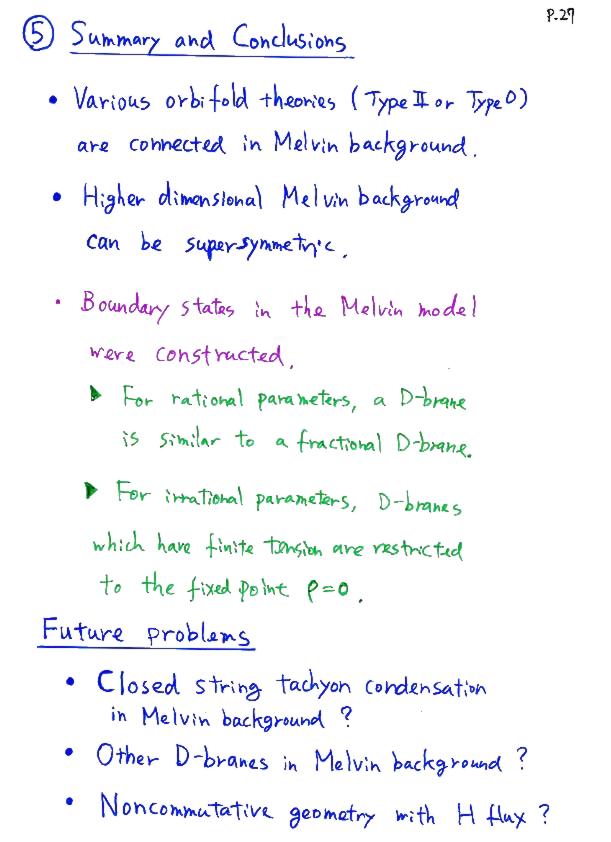 P.27
⑤ Summary and Conclusions
• Various orbifold theories (Type II or Type 0)
are connected in Melvin background.
• Higher dimensional Melvin background
can be supersymmetric.
• Boundary states in the Melvin model
were constructed.
▶ For rational parameters, a D-brane
is similar to a fractional D-brane.
▶ For irrational parameters, D-branes
which have finite tension are restricted
to the fixed point ρ=0.
Future problems
• Closed string tachyon condensation
in Melvin background ?
• Other D-branes in Melvin background ?
• Noncommutative geometry with H flux ?